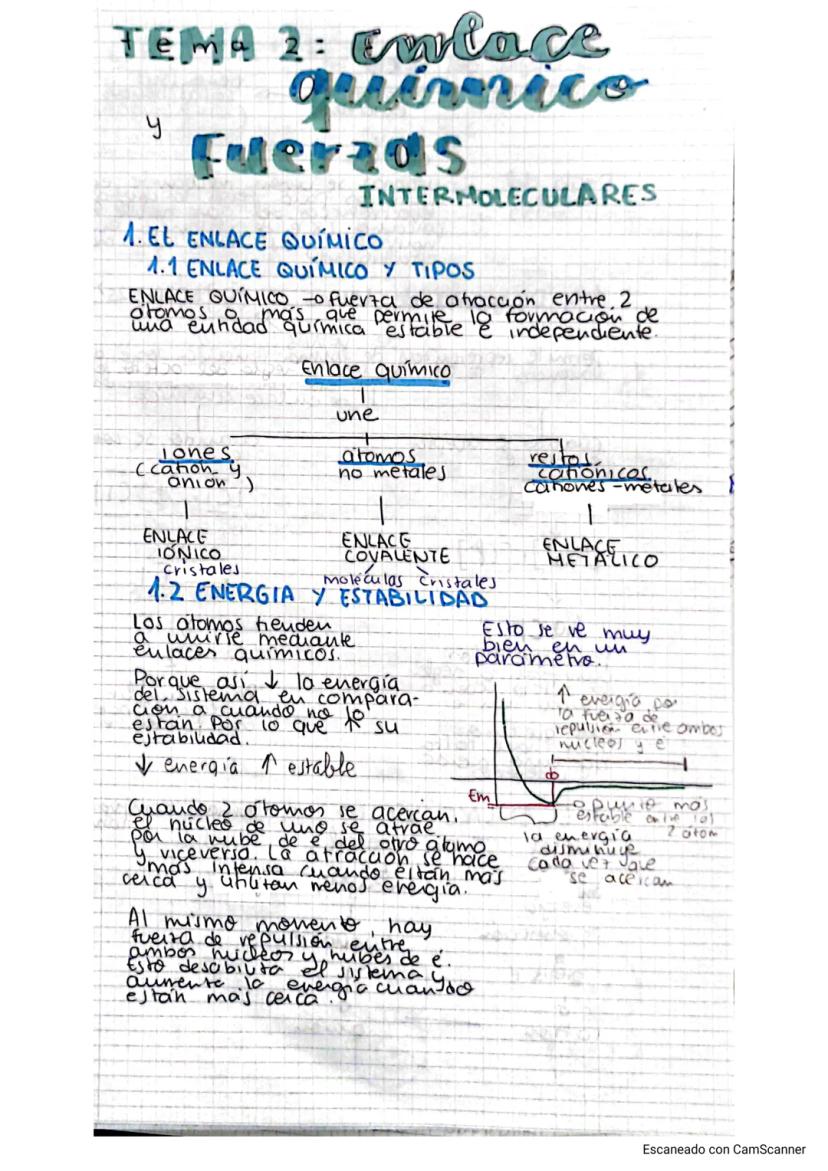 TEMA 2: Enlace
químico
y
Fuerzas
INTERMOLECULARES
1. EL ENLACE QUÍMICO
1.1 ENLACE QUÍMICO Y TIPOS
ENLACE QUÍMICO → fuerza de atracción entre 2
átomos o más que permite la formación de
una entidad química estable e independiente.
Enlace químico
une
iones
(catión y
anión)
átomos
no metales
restos
catiónicos
cationes-metales
ENLACE
IÓNICO
cristales
ENLACE
COVALENTE
moléculas cristales
ENLACE
METÁLICO
1.2 ENERGIA Y ESTABILIDAD
Los átomos tienden
a unirse mediante
enlaces químicos.
Porque así ↓ la energía
del sistema en compara-
ción a cuando no lo
están. Por lo que ↑ su
estabilidad.
↓ energía ↑ estable
Cuando 2 átomos se acercan,
el núcleo de uno se atrae
por la nube de é del otro átomo
y viceversa. La atracción se hace
más intensa cuando están más
cerca y utilizan menos energía.
Al mismo momento, hay
fuerza de repulsión entre
ambos núcleos y nubes de é.
Esto desabiliza el sistema y
aumenta la energía cuando
están más cerca.
Esto se ve muy
bien en un
parámetro.
↑ energía por
la fuerza de
repulsión entre ambos
núcleos y é
Em
→ punto más
estable entre los
2 átom
la energía
disminuye
cada vez que
se acercan
Escaneado con CamScanner